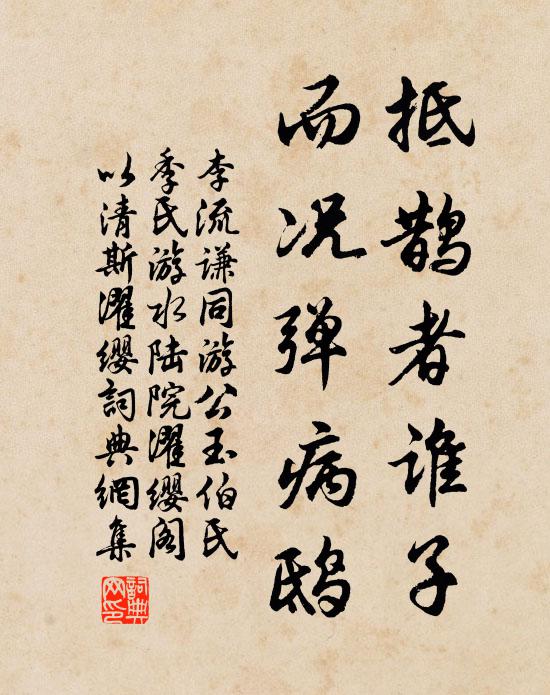 抵鹊者谁子
而况弹病鸱
李流谦同游公玉伯氏
季氏游水陆院濯缨阁
以清斯濯缨詞典網集
詞典网印